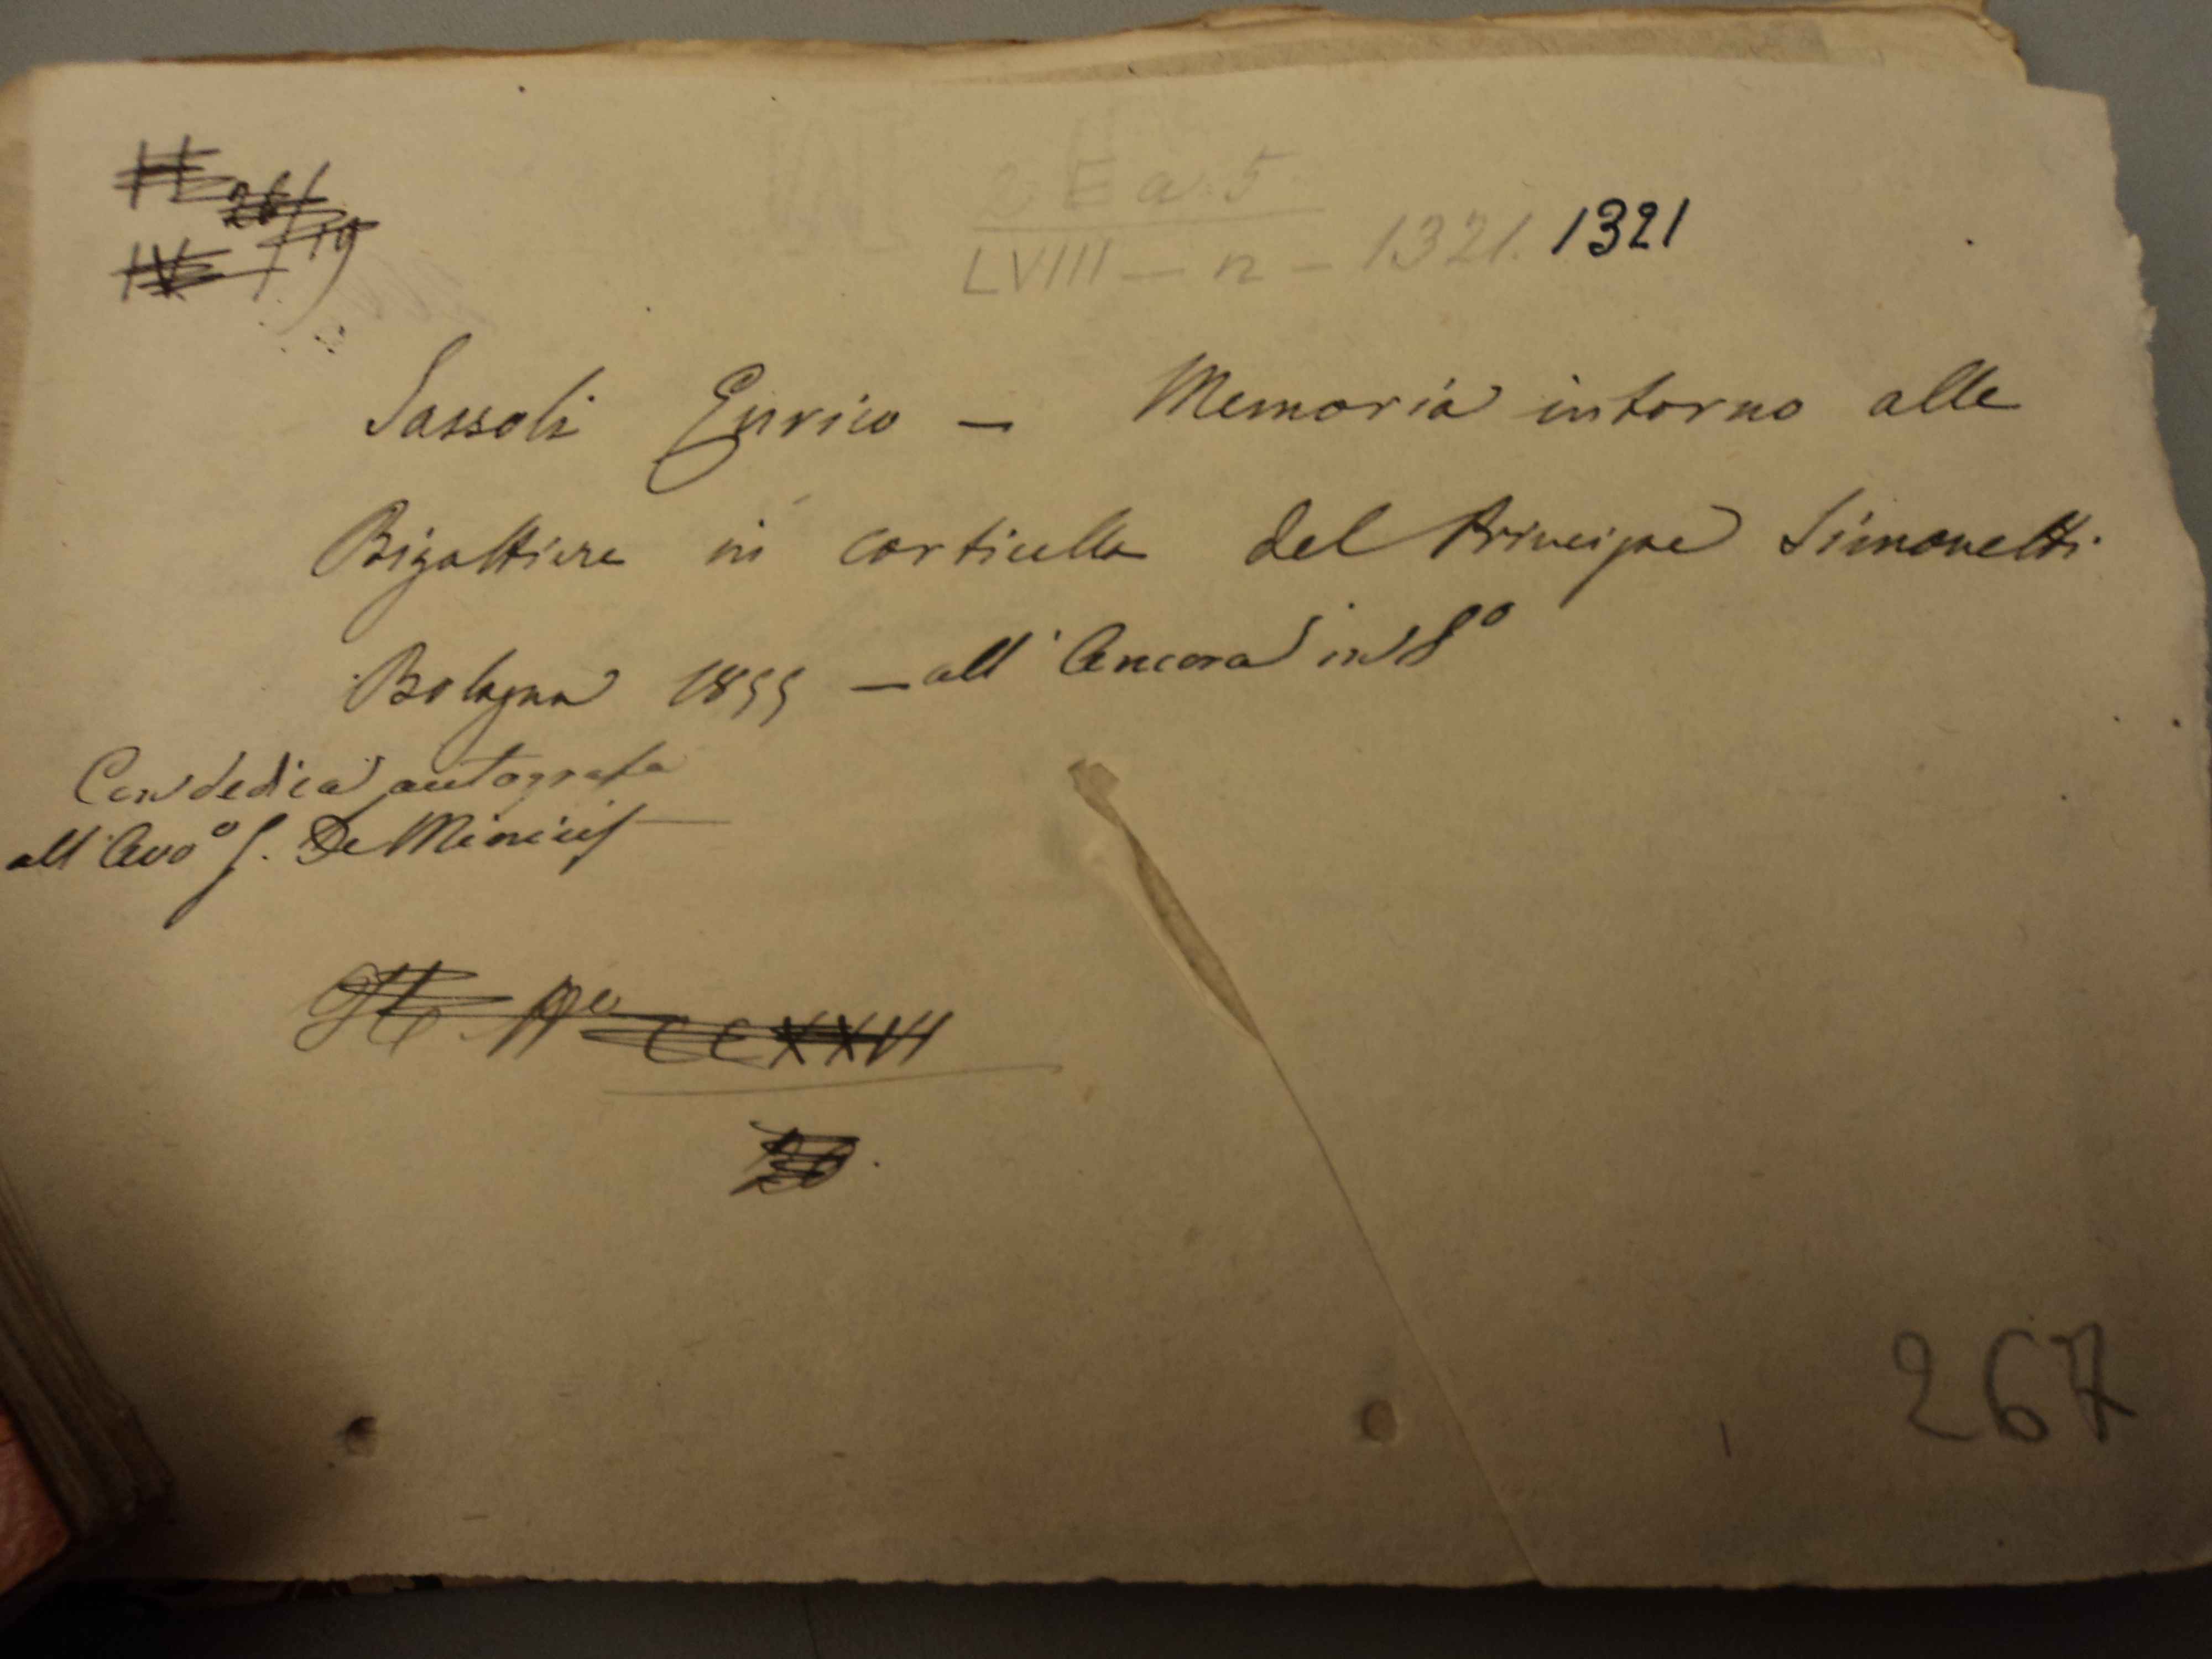 2 E a. 5
LVIII — n — 1321. 1321
26/19
IV
Sassoli Enrico — Memoria intorno alle
Bigattiere in corticella del Principe Simonetti.
Bologna 1855 — all'Ancora in 8º
Con dedica autografa
all'Avvº f. De Minicis
CCXXVI
26.
267